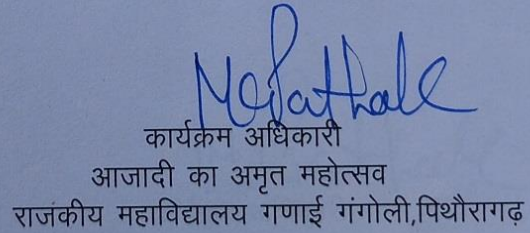 कार्यक्रम अधिकारी
आजादी का अमृत महोत्सव
राजकीय महाविद्यालय गणाई गंगोली,पिथौरागढ़